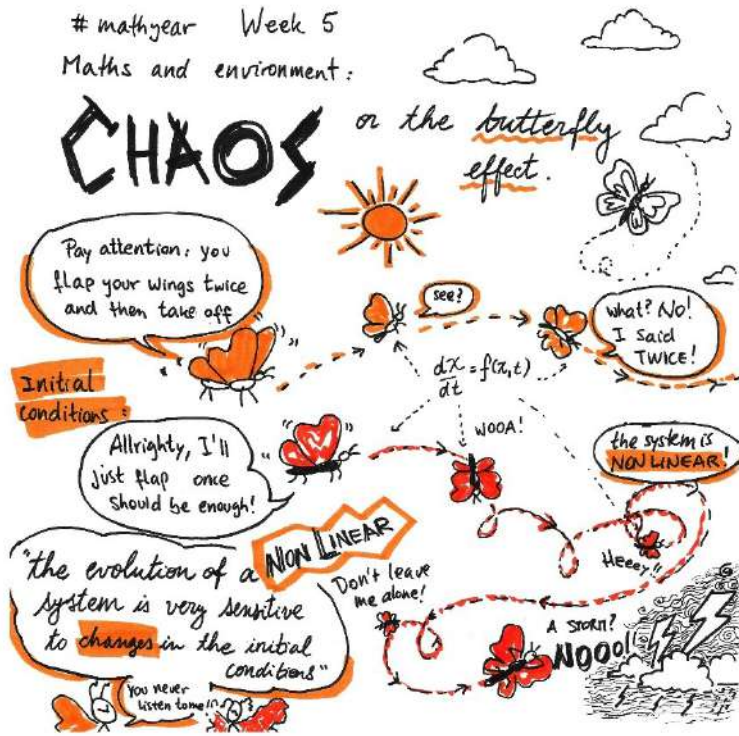 # mathyear Week 5
Maths and environment:
CHAOS or the butterfly
effect.
Pay attention: you
flap your wings twice
and then take off
see?
what? No!
I said
TWICE!
Initial
conditions:
dx/dt = f(x,t)
Allrighty, I'll
just flap once
should be enough!
WOOA!
the system is
NON LINEAR!
Heeey!!
"the evolution of a NON LINEAR
system is very sensitive
to changes in the initial
conditions"
Don't leave
me alone!
A STORM?
NOOO!!
you never
listen to me!!